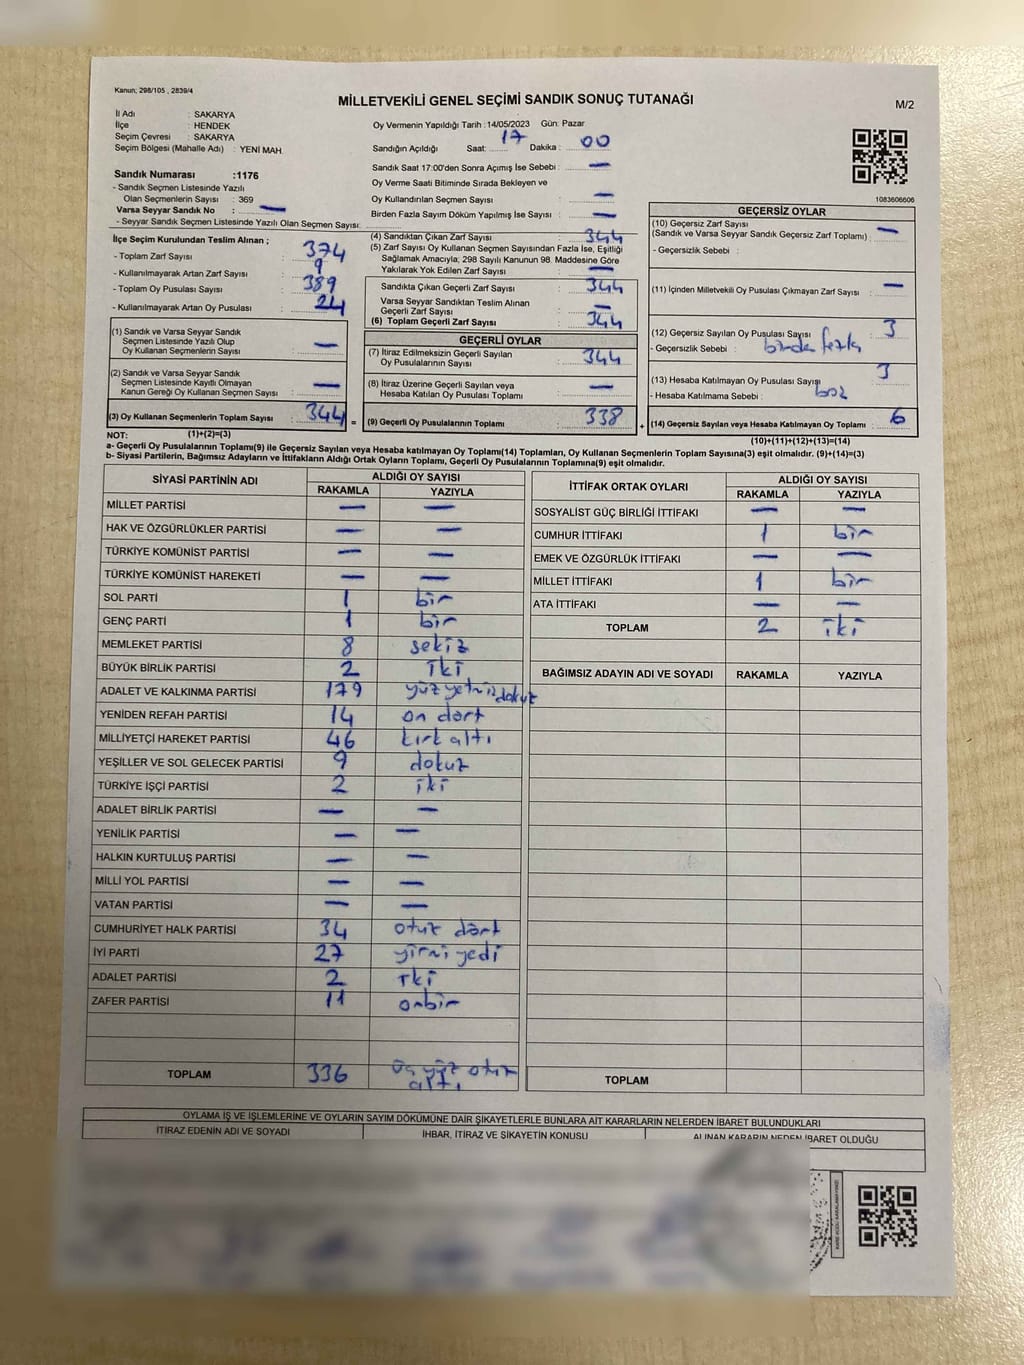 Kanun; 298/105 , 2839/4
MİLLETVEKİLİ GENEL SEÇİMİ SANDIK SONUÇ TUTANAĞI
M/2
İl Adı : SAKARYA
İlçe : HENDEK
Seçim Çevresi : SAKARYA
Seçim Bölgesi (Mahalle Adı) : YENİ MAH.
Oy Vermenin Yapıldığı Tarih :14/05/2023 Gün: Pazar
Sandığın Açıldığı Saat: 17 Dakika : 00
Sandık Saat 17:00'den Sonra Açımış İse Sebebi : —
Oy Verme Saati Bitiminde Sırada Bekleyen ve
Oy Kullandırılan Seçmen Sayısı : —
Birden Fazla Sayım Döküm Yapılmış İse Sayısı : —
1083606606
Sandık Numarası :1176
- Sandık Seçmen Listesinde Yazılı
Olan Seçmenlerin Sayısı : 369
Varsa Seyyar Sandık No : —
- Seyyar Sandık Seçmen Listesinde Yazılı Olan Seçmen Sayısı:
İlçe Seçim Kurulundan Teslim Alınan ;
- Toplam Zarf Sayısı : 374
- Kullanılmayarak Artan Zarf Sayısı : 9
- Toplam Oy Pusulası Sayısı : 389
- Kullanılmayarak Artan Oy Pusulası : 24
(1) Sandık ve Varsa Seyyar Sandık
Seçmen Listesinde Yazılı Olup
Oy Kullanan Seçmenlerin Sayısı : —
(2) Sandık ve Varsa Seyyar Sandık
Seçmen Listesinde Kayıtlı Olmayan
Kanun Gereği Oy Kullanan Seçmen Sayısı : —
(3) Oy Kullanan Seçmenlerin Toplam Sayısı : 344 =
(1)+(2)=(3)
(4) Sandıktan Çıkan Zarf Sayısı : 344
(5) Zarf Sayısı Oy Kullanan Seçmen Sayısından Fazla İse, Eşitliği
Sağlamak Amacıyla; 298 Sayılı Kanunun 98. Maddesine Göre
Yakılarak Yok Edilen Zarf Sayısı : —
Sandıkta Çıkan Geçerli Zarf Sayısı : 344
Varsa Seyyar Sandıktan Teslim Alınan
Geçerli Zarf Sayısı : —
(6) Toplam Geçerli Zarf Sayısı : 344
GEÇERLİ OYLAR
(7) İtiraz Edilmeksizin Geçerli Sayılan
Oy Pusulalarının Sayısı : 344
(8) İtiraz Üzerine Geçerli Sayılan veya
Hesaba Katılan Oy Pusulası Toplamı : —
(9) Geçerli Oy Pusulalarının Toplamı : 338 +
GEÇERSİZ OYLAR
(10) Geçersiz Zarf Sayısı
(Sandık ve Varsa Seyyar Sandık Geçersiz Zarf Toplamı) : —
- Geçersizlik Sebebi :
(11) İçinden Milletvekili Oy Pusulası Çıkmayan Zarf Sayısı : —
(12) Geçersiz Sayılan Oy Pusulası Sayısı : 3
- Geçersizlik Sebebi : birden fazla
(13) Hesaba Katılmayan Oy Pusulası Sayısı : 3
- Hesaba Katılmama Sebebi : boz
(14) Geçersiz Sayılan veya Hesaba Katılmayan Oy Toplamı : 6
(10)+(11)+(12)+(13)=(14)
NOT:
a- Geçerli Oy Pusulalarının Toplamı(9) ile Geçersiz Sayılan veya Hesaba katılmayan Oy Toplamı(14) Toplamları, Oy Kullanan Seçmenlerin Toplam Sayısına(3) eşit olmalıdır. (9)+(14)=(3)
b- Siyasi Partilerin, Bağımsız Adayların ve İttifakların Aldığı Oyların Toplamı, Geçerli Oy Pusulalarının Toplamına(9) eşit olmalıdır.
SİYASİ PARTİNİN ADI ALDIĞI OY SAYISI
RAKAMLA YAZIYLA
MİLLET PARTİSİ — —
HAK VE ÖZGÜRLÜKLER PARTİSİ — —
TÜRKİYE KOMÜNİST PARTİSİ — —
TÜRKİYE KOMÜNİST HAREKETİ — —
SOL PARTİ 1 bir
GENÇ PARTİ 1 bir
MEMLEKET PARTİSİ 8 sekiz
BÜYÜK BİRLİK PARTİSİ 2 iki
ADALET VE KALKINMA PARTİSİ 179 yüz yetmiş dokuz
YENİDEN REFAH PARTİSİ 14 on dört
MİLLİYETÇİ HAREKET PARTİSİ 46 kırk altı
YEŞİLLER VE SOL GELECEK PARTİSİ 9 dokuz
TÜRKİYE İŞÇİ PARTİSİ 2 iki
ADALET BİRLİK PARTİSİ — —
YENİLİK PARTİSİ — —
HALKIN KURTULUŞ PARTİSİ — —
MİLLİ YOL PARTİSİ — —
VATAN PARTİSİ — —
CUMHURİYET HALK PARTİSİ 34 otuz dört
İYİ PARTİ 27 yirmi yedi
ADALET PARTİSİ 2 iki
ZAFER PARTİSİ 11 onbir
TOPLAM 336 üç yüz otuz
altı
İTTİFAK ORTAK OYLARI ALDIĞI OY SAYISI
RAKAMLA YAZIYLA
SOSYALİST GÜÇ BİRLİĞİ İTTİFAKI — —
CUMHUR İTTİFAKI 1 bir
EMEK VE ÖZGÜRLÜK İTTİFAKI — —
MİLLET İTTİFAKI 1 bir
ATA İTTİFAKI — —
TOPLAM 2 iki
BAĞIMSIZ ADAYIN ADI VE SOYADI RAKAMLA YAZIYLA
TOPLAM
OYLAMA İŞ VE İŞLEMLERİNE VE OYLARIN SAYIM DÖKÜMÜNE DAİR ŞİKAYETLERLE BUNLARA AİT KARARLARIN NELERDEN İBARET BULUNDUKLARI
İTİRAZ EDENİN ADI VE SOYADI İHBAR, İTİRAZ VE ŞİKAYETİN KONUSU ALINAN KARARIN NEDEN İBARET OLDUĞU